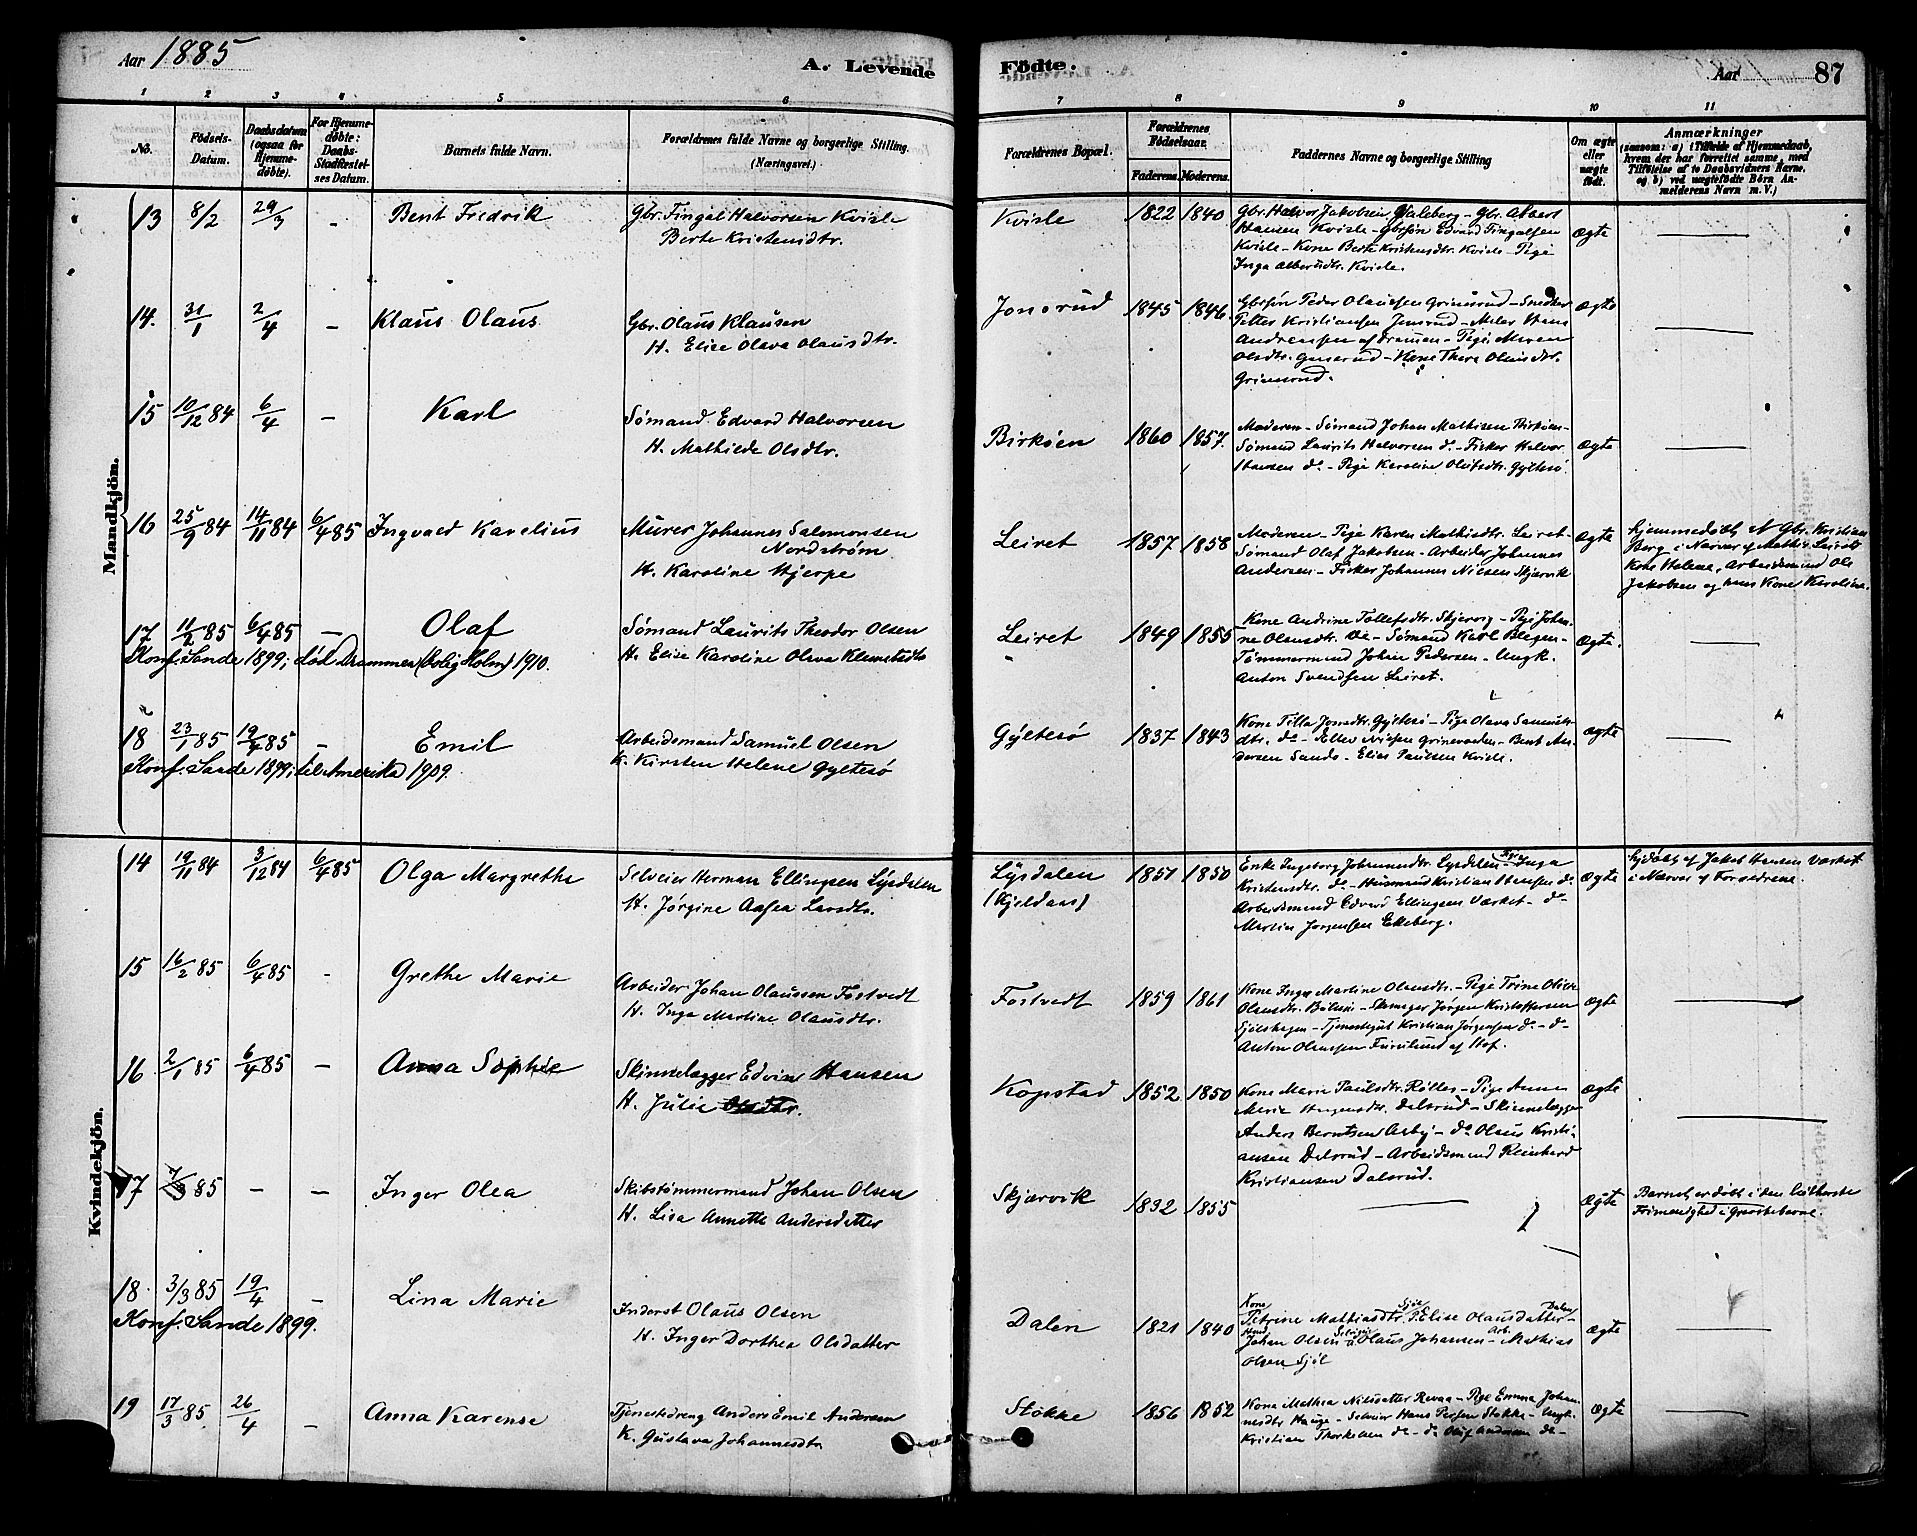 Aar 1885
A. Levende
Födte.
Aar
87
1 2 3 4 5 6 7 8 9 10 11
No.
Födsels-Datum.
Daabsdatum (ogsaa for Hjemmedöbte).
For Hjemmedöbte: Daabs-Stadfæstelses Datum.
Barnets fulde Navn.
Forældrenes fulde Navne og borgerlige Stilling.
(Næringsvei.)
Forældrenes Bopæl.
Forældrenes Födselsaar.
Faderens. Moderens.
Faddernes Navne og borgerlige Stilling
Om ægte eller uægte födt.
Anmærkninger
(saasom: a) i Tilfælde af Hjemmedaab,
hvem der har forrettet samme, med
Tilföielse af to Daabsvidners Navne.
og b) ved uægtefödte Börn Anmelderens Navn m. V.)
Mandkjön.
13 8/2 29/3 - Bent Fredrik
Gbr. Fingal Halvorsen Kvisle
Berte Kristensdtr.
Kvisle 1822 1840
Gbr. Halvor Jakobsen Galeberg - Gbr. Albert
Hansen Kvisle - Gbrsøn Edvard Fingalsen
Kvisle - Kone Berte Kristensdtr. Kvisle - Pige
Inga Albertsdtr. Kvisle.
ægte
14. 31/1 2/4 - Klaus Olaus
Gbr. Olaus Klausen
H. Elise Olava Olausdtr.
Jonsrud 1845 1846.
Gbrsøn Peder Olausen Grimsrud - Snedker
Petter Kristiansen Jonsrud - Maler Hans
Andreasen af Drammen - Pige Maren
Olsdtr. - Kone Thora Olausdtr.
Grimsrud.
ægte
15 10/12 84 6/4 - Karl
Sømand Edvard Halvorsen
H. Mathilde Olsdtr.
Birkøen 1860 1857.
Moderen - Sømand Johan Mathisen Birkøen -
Sømand Laurits Halvorsen do - Fisker Halvor
Hansen do - Pige Karoline Olsdtr. Gyltesø.
ægte
16 25/9 84 14/11 84 6/4 85 Ingvald Karelius
Murer Johannes Salomonsen
Nordstrøm
H. Karoline Hjerpe
Leiret 1857 1858
Moderen - Pige Karen Mathisdtr. Leiret -
Sømand Olaf Jakobsen - Arbeider Johannes
Andersen - Fisker Johannes Nilsen Skjærvik
ægte
hjemmedøbt af Gbr. Kristian
Berg i Nærvær af Mathis Leirets
Kone Helene, Arbeidsmand Ole
Jakobsen og hans Kone Karoline.
17 11/2 85 6/4 85 - Olaf
Sømand Laurits Theodor Olsen
H. Elise Karoline Olava Klemetsdtr
Konf. Sande 1899; død Drammen (bolig Holm) 1910.
Leiret 1849 1855
Kone Andrine Tollefsdtr. Skjervig - Pige Johanne
Olausdtr. do - Sømand Karl Blegen -
Tømmermand Johan Pedersen - Ungk.
Anton Svendsen Leiret.
ægte.
18 23/1 85 19/4 85 - Emil
Arbeidsmand Samuel Olsen
K. Kirsten Helene Gyltesø
Konf. Sande 1899; til Amerika 1909.
Gyltesø 1837 1843
Kone Tilla Jonsdtr. Gyltesø - Pige Olava Samuelsdtr. do - Ellev Nielsen - Bent Andersen Sando - Elias Paulsen Kvisle.
ægte
Kvindekjön.
14 19/11 84 3/12 84 6/4 85 Olga Margrethe
Selveier Herman Ellingsen Lysdalen
H. Jørgine Aasea Larsdtr.
Lysdalen
(Kjeldaas)
1851 1850
Enke Ingeborg Johannesdtr. Lysdalen - Pige Inga
Kristensdtr. do - Husmand Kristian Hansen do
Arbeidsmand Edvard Ellingsen Værket - do
Martin Jørgensen Ekeberg.
ægte
hjdøbt af Jakob Hansen Værket
i Nærvær af Forældrene.
15 16/2 85 6/4 85 - Grethe Marie
Arbeider Johan Olaussen Fostvedt
H. Inga Martine Olausdtr.
Fostvedt 1859 1861
Kone Inga Martine Olausdtr. - Pige Trine Olise
Olausdtr. - Jørgen Kristoffersen
Sjølshagen - Tjenestegut Kristian Jørgensen do - do
Anton Olaussen Furulund af Hof.
ægte
16 2/1 85 6/4 85 - Anna Sophie
Skinnelægger Edvin Hansen
H. Julie Olsdtr.
Kopstad 1852 1850
Kone Marie Paulsdtr. Rølles - Pige Anne
Marie Dalsrud - Skinnelægger
Anders Berntsen Aasby - do Olaus Kristiansen
Dalsrud - Arbeidsmand Reinhard
Kristiansen Dalsrud.
ægte
17 7/3 85 - - Inger Olea
Skibstømmermand Johan Olsen
H. Lisa Annette Andersdatter
Skjærvik 1832 1855
ægte
Barnet er døbt i den lutherske
Frimenighed i Græsbeberne.
18. 3/3 85 19/4 - Lina Marie
Inderst Olaus Olsen
H. Inger Dorthea Olsdatter
Konf. Sande 1899.
Dalen 1821 1840
Kone Petrine Mathiasdtr. Sjøl P. Elise Olausdatter Dalen -
Johan Olsen - Selveier Olaus Johansen - Arb. Mathias
Olsen Sjøl
ægte
19 17/3 85. 26/4 - Anna Karense
Tjenestedreng Anders Emil Andersen
K. Gustava Johannesdtr
Stokke 1856 1852
Kone Mathea Nilsdatter Revaa - Pige Emma Johannesdtr Hauge - Selveier Hans Persen Stokke - Ungk.
Kristian Thorksen do - do Oluf Andersen do -
ægte